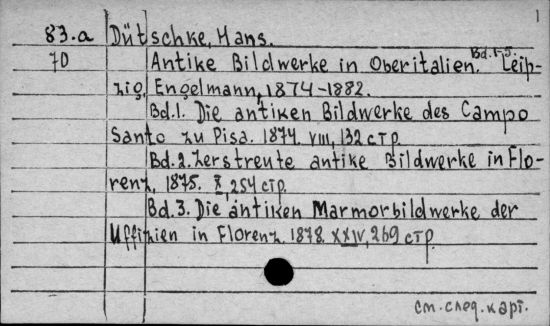 1
83.a Dütschke, Hans.
70 Antike Bildwerke in Oberitalien. Bd.1-5. Leip-
zig, Engelmann, 1874-1882.
Bd.1. Die antiken Bildwerke des Campo
Santo zu Pisa. 1874. VIII, 132 стр.
Bd.2. Zerstreute antike Bildwerke in Flo-
renz, 1875. X, 254 стр.
Bd.3. Die antiken Marmorbildwerke der
Uffizien in Florenz. 1878. XXIV, 269 стр.
см. след. карт.